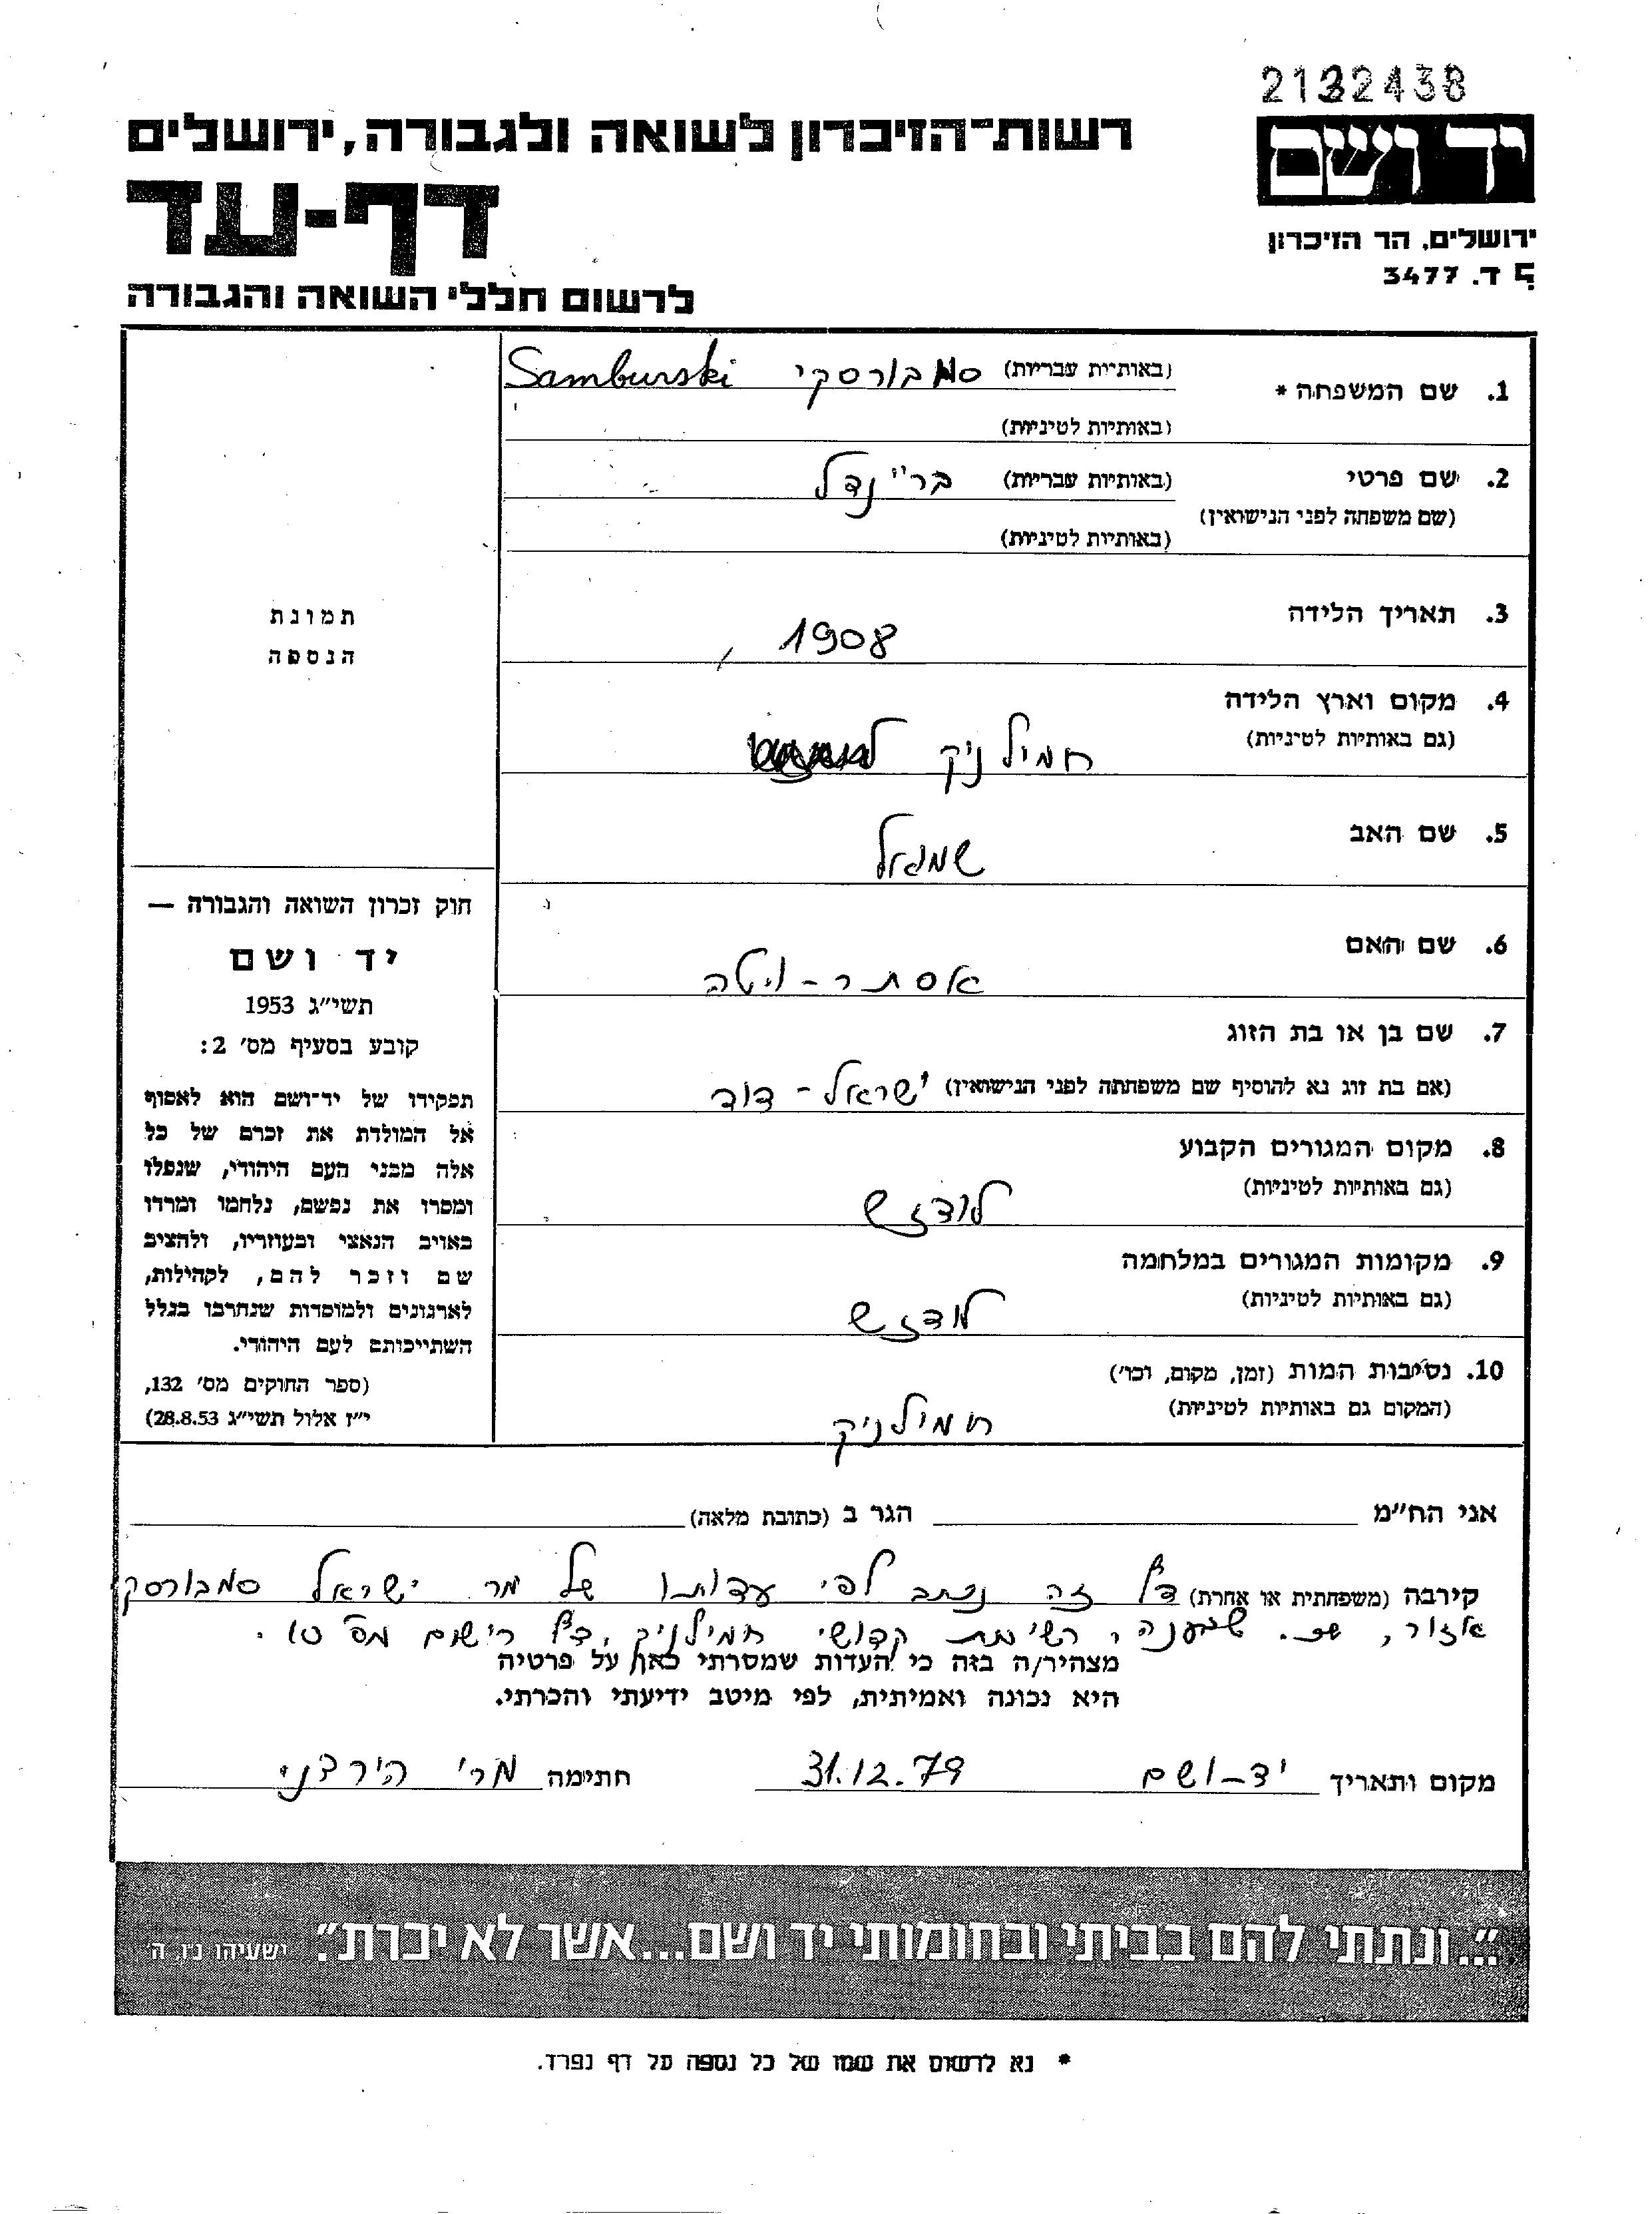 2132438
רשות־הזיכרון לשואה ולגבורה, ירושלים
יד ושם
דף-עד
ירושלים, הר הזיכרון
ת.ד. 3477
לרשום חללי השואה והגבורה
1. שם המשפחה * (באותיות עבריות) סמבורסקי Samburski
(באותיות לטיניות)
2. שם פרטי (באותיות עבריות) בריינדל
(שם משפחה לפני הנישואין)
(באותיות לטיניות)
3. תאריך הלידה 1908
4. מקום וארץ הלידה
(גם באותיות לטיניות) חמילניק
5. שם האב שמואל
6. שם האם אסתר-ויטה
7. שם בן או בת הזוג
(אם בת זוג נא להוסיף שם משפחתה לפני הנישואין) ישראל-דוד
8. מקום המגורים הקבוע
(גם באותיות לטיניות) לודזש
9. מקומות המגורים במלחמה
(גם באותיות לטיניות) לודזש
10. נסיבות המות (זמן, מקום, וכו')
(המקום גם באותיות לטיניות) חמילניק
תמונת
הנספה
חוק זכרון השואה והגבורה —
יד ושם
תשי"ג 1953
קובע בסעיף מס' 2:
תפקידו של יד־ושם הוא לאסוף
אל המולדת את זכרם של כל
אלה מבני העם היהודי, שנפלו
ומסרו את נפשם, נלחמו ומרדו
באויב הנאצי ובעוזריו, ולהציב
שם וזכר להם, לקהילות,
לארגונים ולמוסדות שנחרבו בגלל
השתייכותם לעם היהודי.
(ספר החוקים מס' 132,
י"ז אלול תשי"ג 28.8.53)
אני הח"מ הגר ב (כתובת מלאה)
קירבה (משפחתית או אחרת) ד"ע זה נכתב לפי עדותו של מר ישראל סמבורסקי
אזור, שכ. רשימת קדושי חמילניק, ד"ע רישום מס 10.
מצהיר/ה בזה כי העדות שמסרתי כאן על פרטיה
היא נכונה ואמיתית, לפי מיטב ידיעתי והכרתי.
מקום ותאריך יד-ושם 31.12.79 חתימה
"...ונתתי להם בביתי ובחומותי יד ושם...אשר לא יכרת". ישעיהו נ"ו, ה'
* נא לרשום את שמו של כל נספה על דף נפרד.